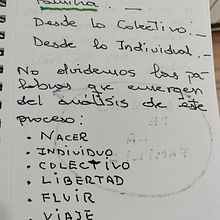 Familia. _
Desde lo Colectivo. _
Desde lo Individual. _
No olvidemos las pa
labras que emergen
del análisis de este
proceso:
• NACER
• INDIVIDUO
• COLECTIVO
• LIBERTAD
• FLUIR
• VIAJE